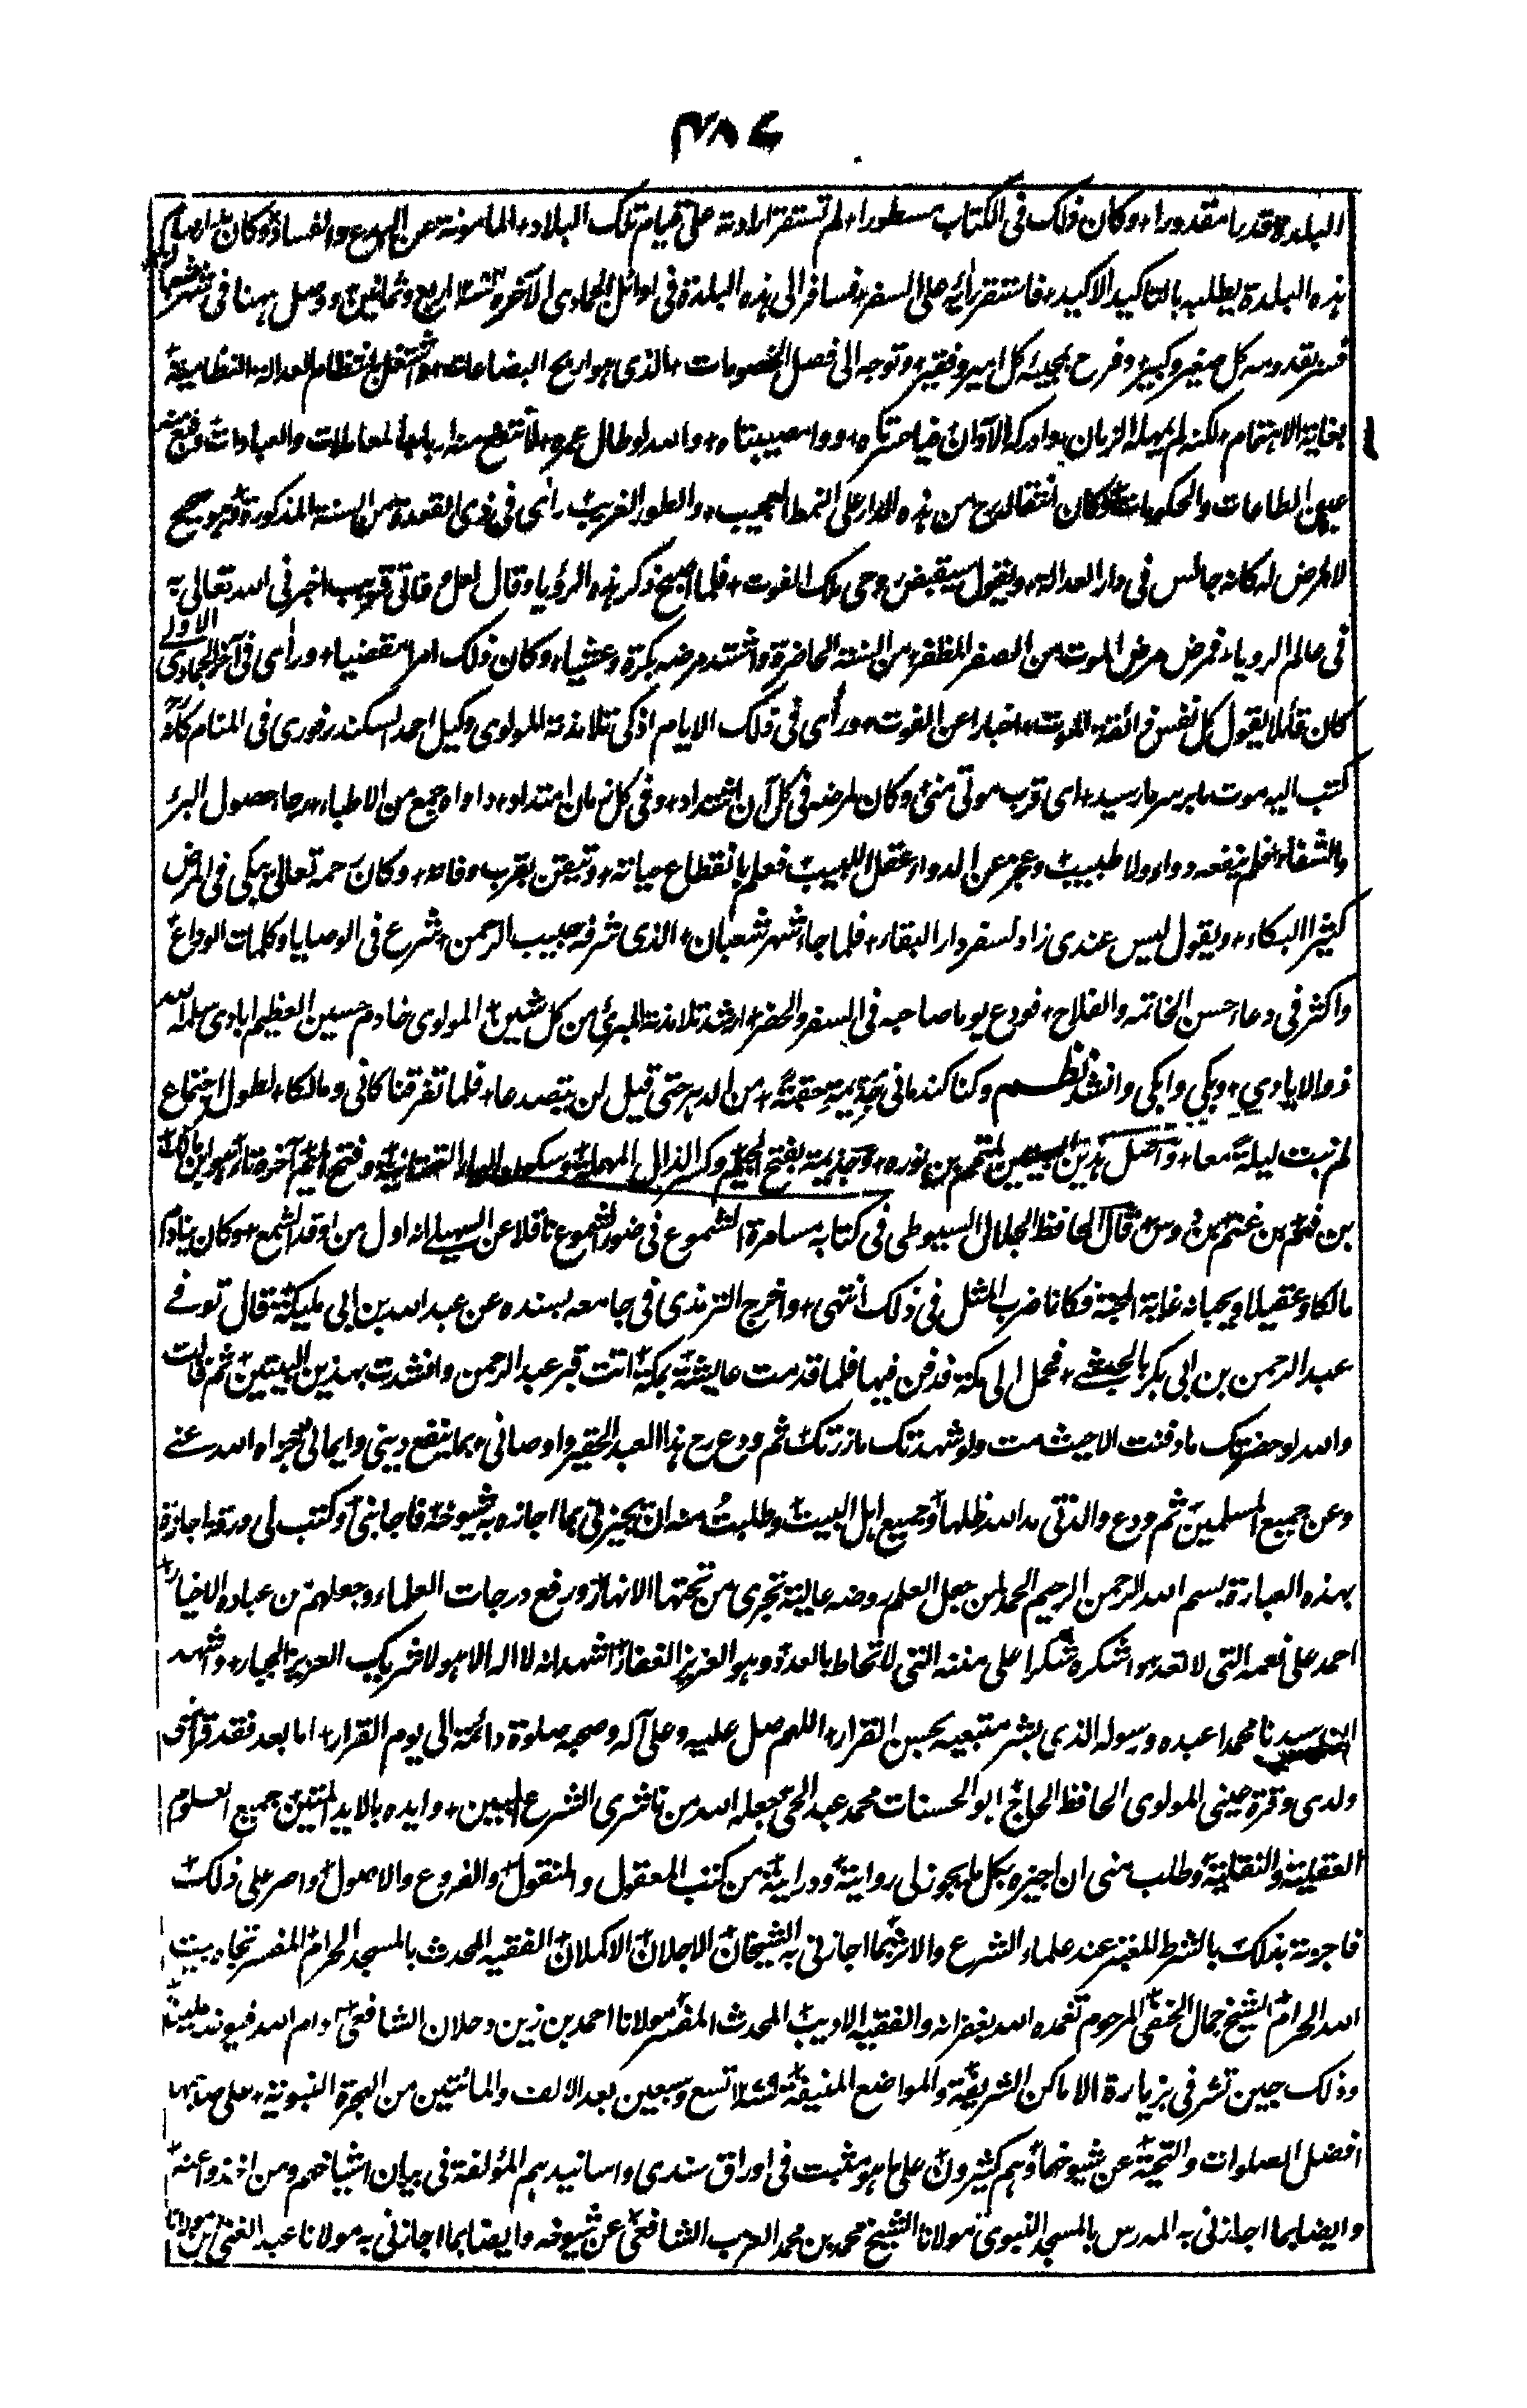 ۴۸۷
البلدة قدرا مقدورا، وكان ذلك في الكتاب مسطورا، لم تستقر ارادته على قيام تلك البلاد، المامونة عن البدع والفساد، وكان
هذه البلدة يطلبه بالتاكيد الاكيد، فاستقر رأيه على السفر، فسافر الى هذه البلدة في اوائل الجمادى الآخرة سنة اربع وثمانين، ووصل ههنا في شهر
فسر بقدومه كل صغير وكبير، وفرح بمجيئه كل امير وفقير، وتوجه الى فصل الخصومات، الذي هو اربح البضاعات، واشتغل بانتظام العدالة النظامية
بغاية الاهتمام، لكنه لم يمهله الزمان، وادركه الآوان، فياحسرتاه، ووامصيبتاه، والله لو طال عمره، لانتفع منه ارباب المعاملات والعبادات،
عيون الطاعات والحكومات، وكان انتقاله رح من هذه الدار على النمط العجيب، والطور الغريب، رأى في ذي القعدة من السنة المذكورة وهو صحيح
لا مرض له كانه جالس في دار العدالة، ويقول سيقبض روحي ملك الموت، فلما اصبح ذكر هذه الرؤيا وقال لعل وفاتي قريب اخبرني الله تعالى به
في عالم الرويا، فمرض مرض الموت من الصفر المظفر من السنة الحاضرة واشتد مرضه بكرة وعشيا، وكان ذلك امرا مقضيا، ورأى في آخر الجمادى الاولى
كان قائلا يقول كل نفس ذائقة الموت، اخبارا عن الفوت، ورأى في تلك الايام اذكى تلامذته المولوي وكيل احمد السكندرفوري في المنام كانه رح
كتب اليه موت ما بر سر ما رسيد، اى قرب موتي مني، وكان لمرضه في كل آن اشتداد، وفي كل زمان امتداد، داواه جمع من الاطباء، رجاء حصول البرء
والشفاء، فلم ينفعه دواء ولا طبيب، وعجز عن الدواء عقل اللبيب، فعلم بانقطاع حياته، وتيقن بقرب وفاته، وكان رحمه تعالى يبكي في المرض
كثير البكاء، ويقول ليس عندي زاد لسفر دار البقاء، فلما جاء شهر شعبان، الذي شرفه حبيب الرحمن، شرع في الوصايا وكلمات الوداع،
واكثر في دعاء حسن الخاتمه والفلاح، فودع يوما صاحبه في السفر والحضر، ارشد تلامذته المبرئ من كل شين، المولوي خادم حسين العظيم ابادي سلمه الله
ذو الايادي، وبكى وابكى وانشد نظـــم وكنا كندماني جذيمة حقبة، من الدهر حتى قيل لن يتصدعا، فلما تفرقنا كاني ومالكا، لطول اجتماع
لم نبت ليلة معا، واصل هذين البيتين لمتمم بن نويره، وجذيمة بفتح الجيم وكسر الذال المهملة وسكون الياء التحتانية وفتح الميم آخره تاء، هو ابن مالك
بن فهم بن غنم بن دوس، قال الحافظ الجلال السيوطي في كتابه مسامرة الشموع في ضوء الشموع ناقلا عن السهيلي انه اول من اوقد الشمع، وكان ينادم
مالكا وعقيلا ويحبانه غاية المحبة فكانا ضرب المثل في ذلك انتهى، واخرج الترمذي في جامعه بسنده عن عبدالله بن ابي مليكة، قال توفي
عبد الرحمن بن ابي بكر بالحبشي، فحمل الى مكة فدفن فيها فلما قدمت عايشة بمكة اتت قبر عبد الرحمن وانشدت بهذين البيتين ثم قالت
والله لو حضرتك ما دفنت الا حيث مت ولو شهدتك ما زرتك ثم ودع رح هذا العبد الحقير واوصاني بما ينفع ديني وايماني، جزاه الله عني
وعن جميع المسلمين ثم ودع والدتي مد الله ظلها، وجميع اهل البيت، وطلبت منه ان يجيزني بما اجازه به شيوخه، فاجابني، وكتب لي ورقة اجازة
بهذه العبارة بسم الله الرحمن الرحيم الحمد لمن جعل العلم روضه عالية تجري من تحتها الانهار، ورفع درجات العلماء وجعلهم من عباده الاخيار،
احمد على نعمه التي لا تعد، واشكره شكرا على مننه التي لا تحاط بالعد، وهو العزيز الغفار، اشهد انه لا اله الا هو لا شريك العزيز الجبار، واشهد
ان سيدنا محمدا عبده ورسوله الذي بشر متبعيه بحسن القرار، اللهم صل عليه وعلى آله وصحبه صلوة دائمة الى يوم القرار، اما بعد فقد قرأ مني
ولدي وقرة عيني المولوي الحافظ الحاج ابو الحسنات محمد عبد الحى جعله الله من ناشرى الشرع المبين، وايده بالايد المتين، جميع العلوم
العقلية والنقلية، وطلب مني ان اجيزه بكل ما يجوز لي رواية، ودراية، من كتب المعقول والمنقول، والفروع والاصول، واصر على ذلك،
فاجزته بذلك بالشرط المعتبر عند علماء الشرع والاثر، بما اجازني به الشيخان الاجلان الاكملان، الفقيه المحدث بالمسجد الحرام المفسر تجاه بيت
الله الحرام، الشيخ جمال الحنفي المرحوم تغمده الله بغفرانه والفقيه الاديب المحدث المفسر مولانا احمد بن زين دحلان الشافعي ادام الله فيوضه علينا،
وذلك حين تشرفي بزيارة الاماكن الشريفة والمواضع المنيفة، سنة تسع وسبعين بعد الالف والمائتين من الهجرة النبوية، على صاحبها
افضل الصلوات والتحية، عن شيوخهما، وهم كثيرون، على ما هو مثبت في اوراق سندي واسانيدهم المؤلفة في بيان اشياخهم ومن اخذوا عنه،
وايضا بما اجازني به المدرس بالمسجد النبوي مولانا الشيخ محمد بن محمد العرب الشافعي، عن شيوخه وايضا بما اجازني به مولانا عبد الغني بن مولانا